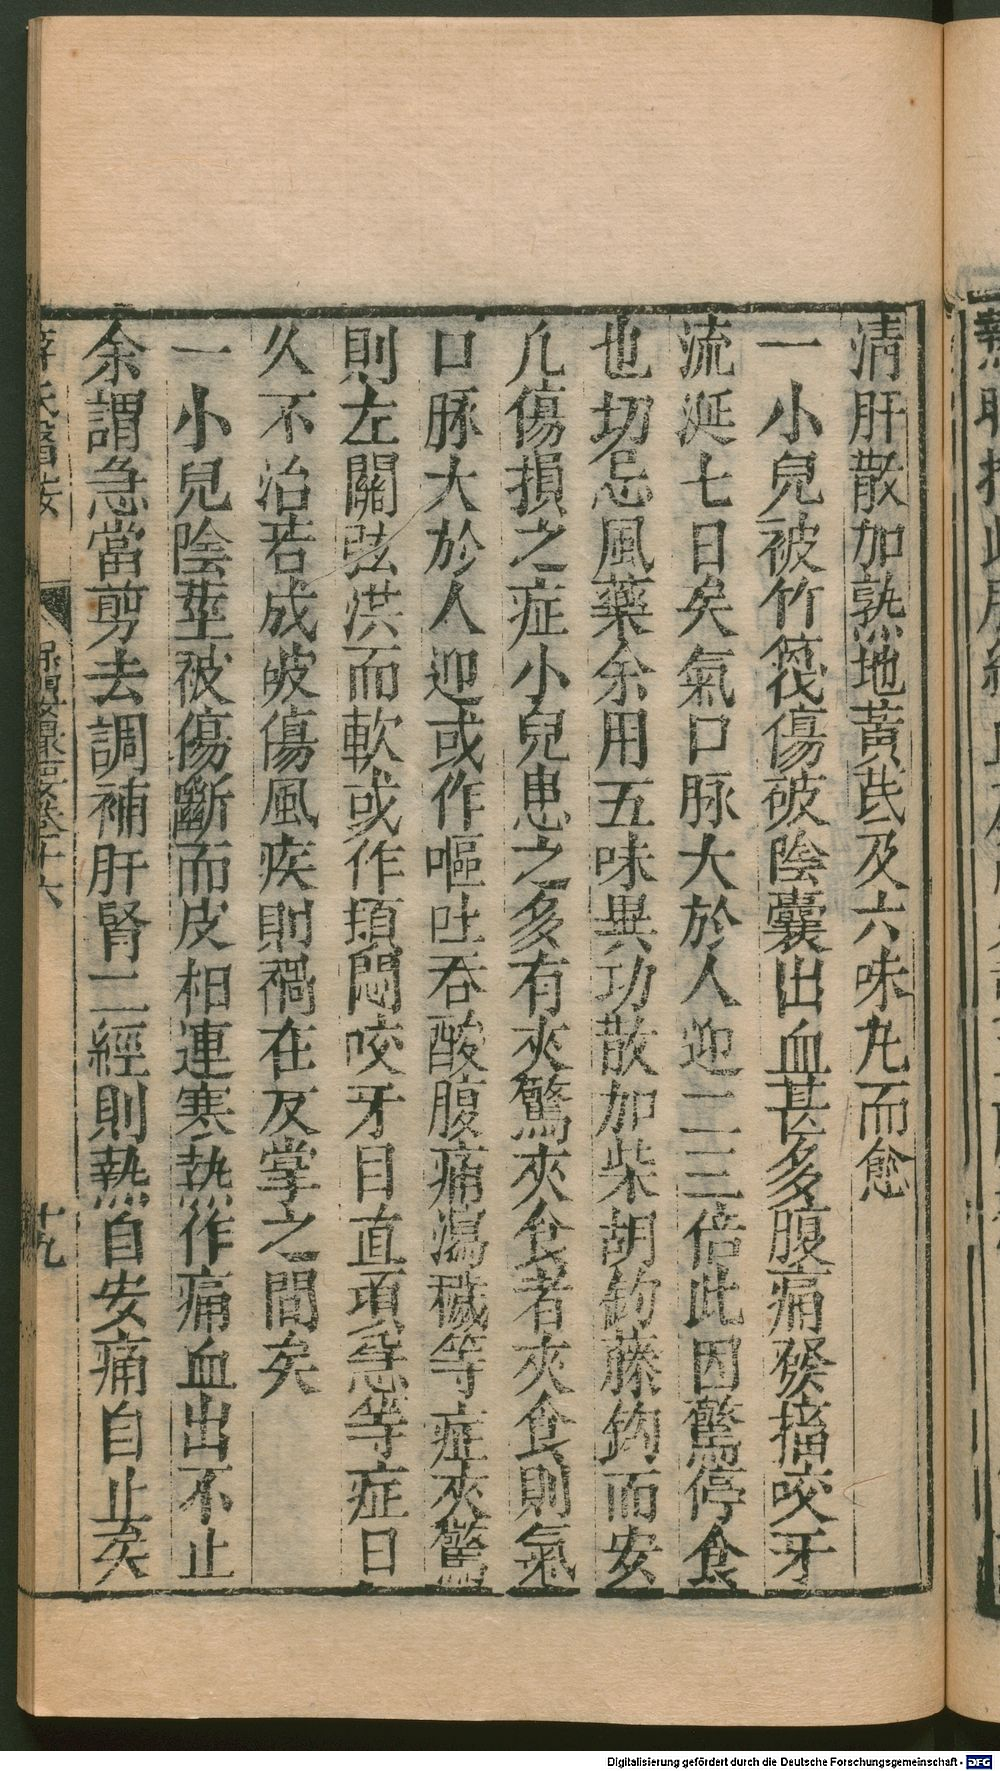 清肝散加熟地黃芪及六味丸而愈
一小兒被竹筏傷破陰囊出血甚多腹痛發搐咬牙
流涎七日矣氣口脉大於人迎二三倍此因驚停食
也切忌風藥余用五味異功散加柴胡鈎藤鈎而安
凡傷損之症小兒患之多有夾驚夾食者夾食則氣
口脉大於人迎或作嘔吐吞酸腹痛瀉穢等症夾驚
則左關弦洪而軟或作煩悶咬牙目直項急等症日
久不治若成破傷風疾則禍在反掌之間矣
一小兒陰莖被傷斷而皮相連寒熱作痛血出不止
余謂急當剪去調補肝腎二經則熱自安痛自止矣
薛氏醫按 保嬰撮要卷十六 十九
Digitalisierung gefördert durch die Deutsche Forschungsgemeinschaft - DFG